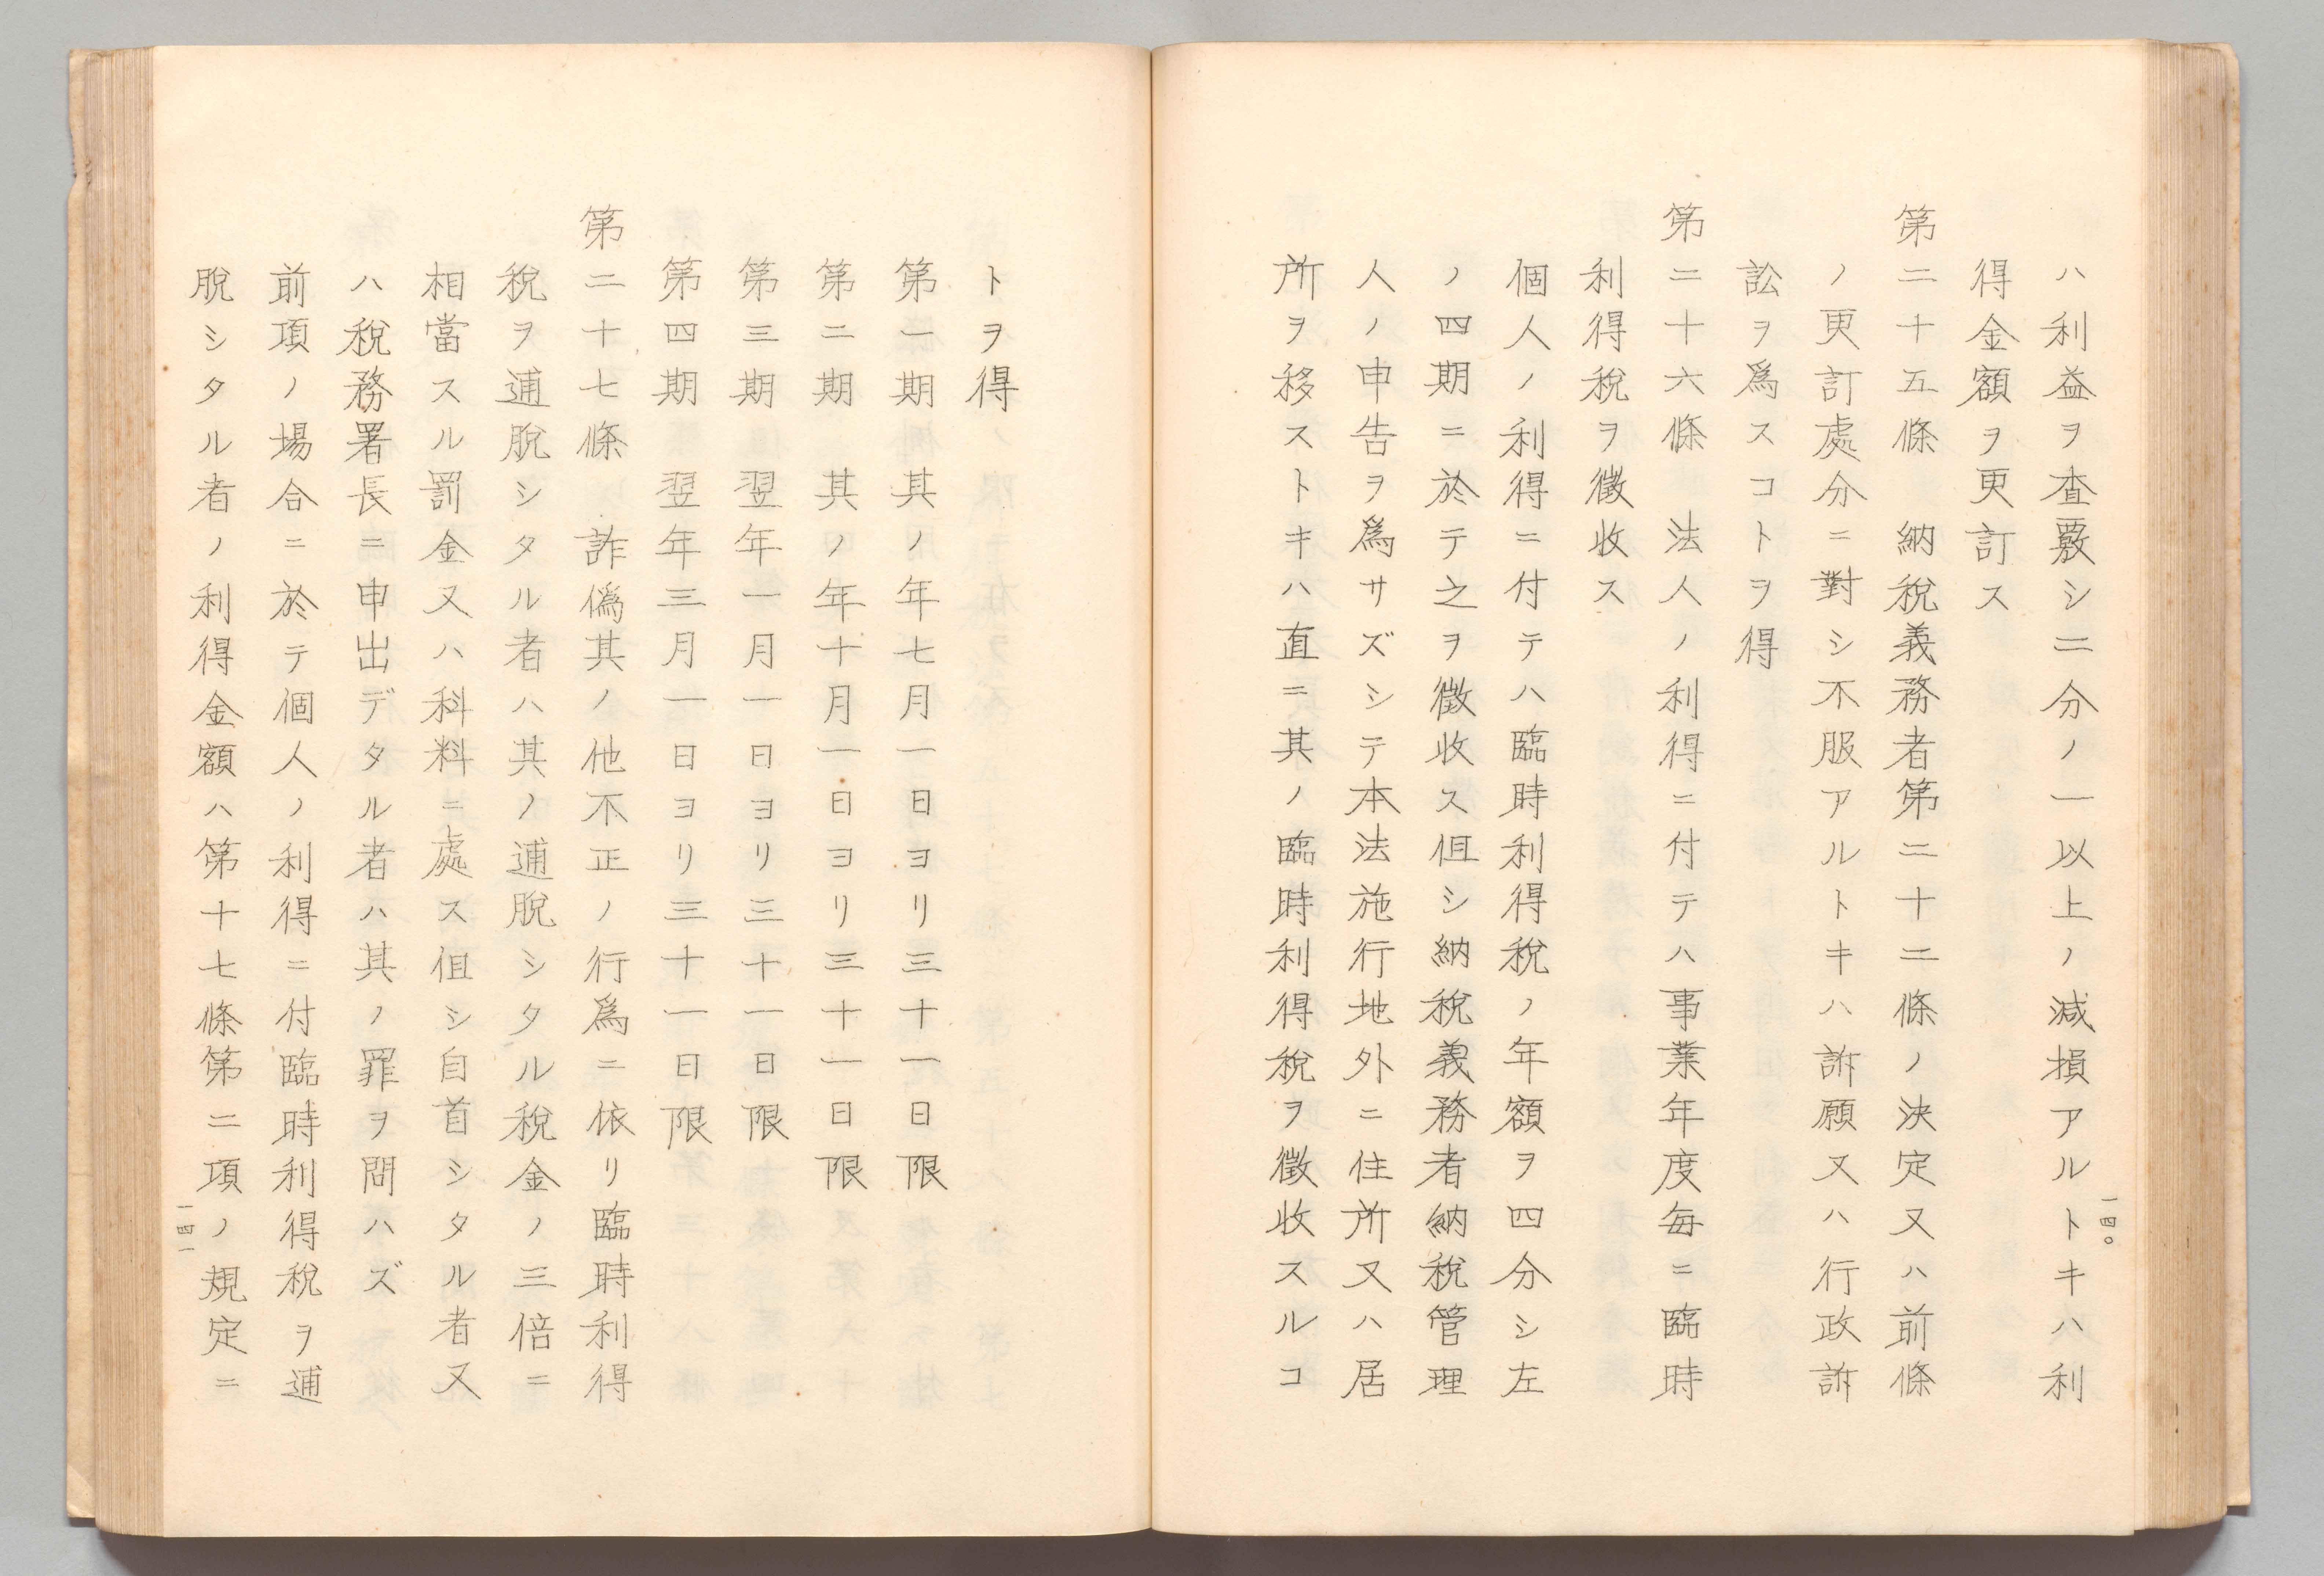 ハ利益ヲ査覈シ二分ノ一以上ノ減損アルトキハ利
得金額ヲ更訂ス
第二十五條　納稅義務者第二十二條ノ決定又ハ前條
ノ更訂處分ニ對シ不服アルトキハ訴願又ハ行政訴
訟ヲ爲スコトヲ得
第二十六條　法人ノ利得ニ付テハ事業年度每ニ臨時
利得稅ヲ徵收ス
個人ノ利得ニ付テハ臨時利得稅ノ年額ヲ四分シ左
ノ四期ニ於テ之ヲ徵收ス但シ納稅義務者納稅管理
人ノ申告ヲ爲サズシテ本法施行地外ニ住所又ハ居
所ヲ移ストキハ直ニ其ノ臨時利得稅ヲ徵收スルコ
一四〇
トヲ得
第一期　其ノ年七月一日ヨリ三十一日限
第二期　其ノ年十月一日ヨリ三十一日限
第三期　翌年一月一日ヨリ三十一日限
第四期　翌年三月一日ヨリ三十一日限
第二十七條　詐僞其ノ他不正ノ行爲ニ依リ臨時利得
稅ヲ逋脫シタル者ハ其ノ逋脫シタル稅金ノ三倍ニ
相當スル罰金又ハ科料ニ處ス但シ自首シタル者又
ハ稅務署長ニ申出デタル者ハ其ノ罪ヲ問ハズ
前項ノ場合ニ於テ個人ノ利得ニ付臨時利得稅ヲ逋
脫シタル者ノ利得金額ハ第十七條第二項ノ規定ニ
一四一